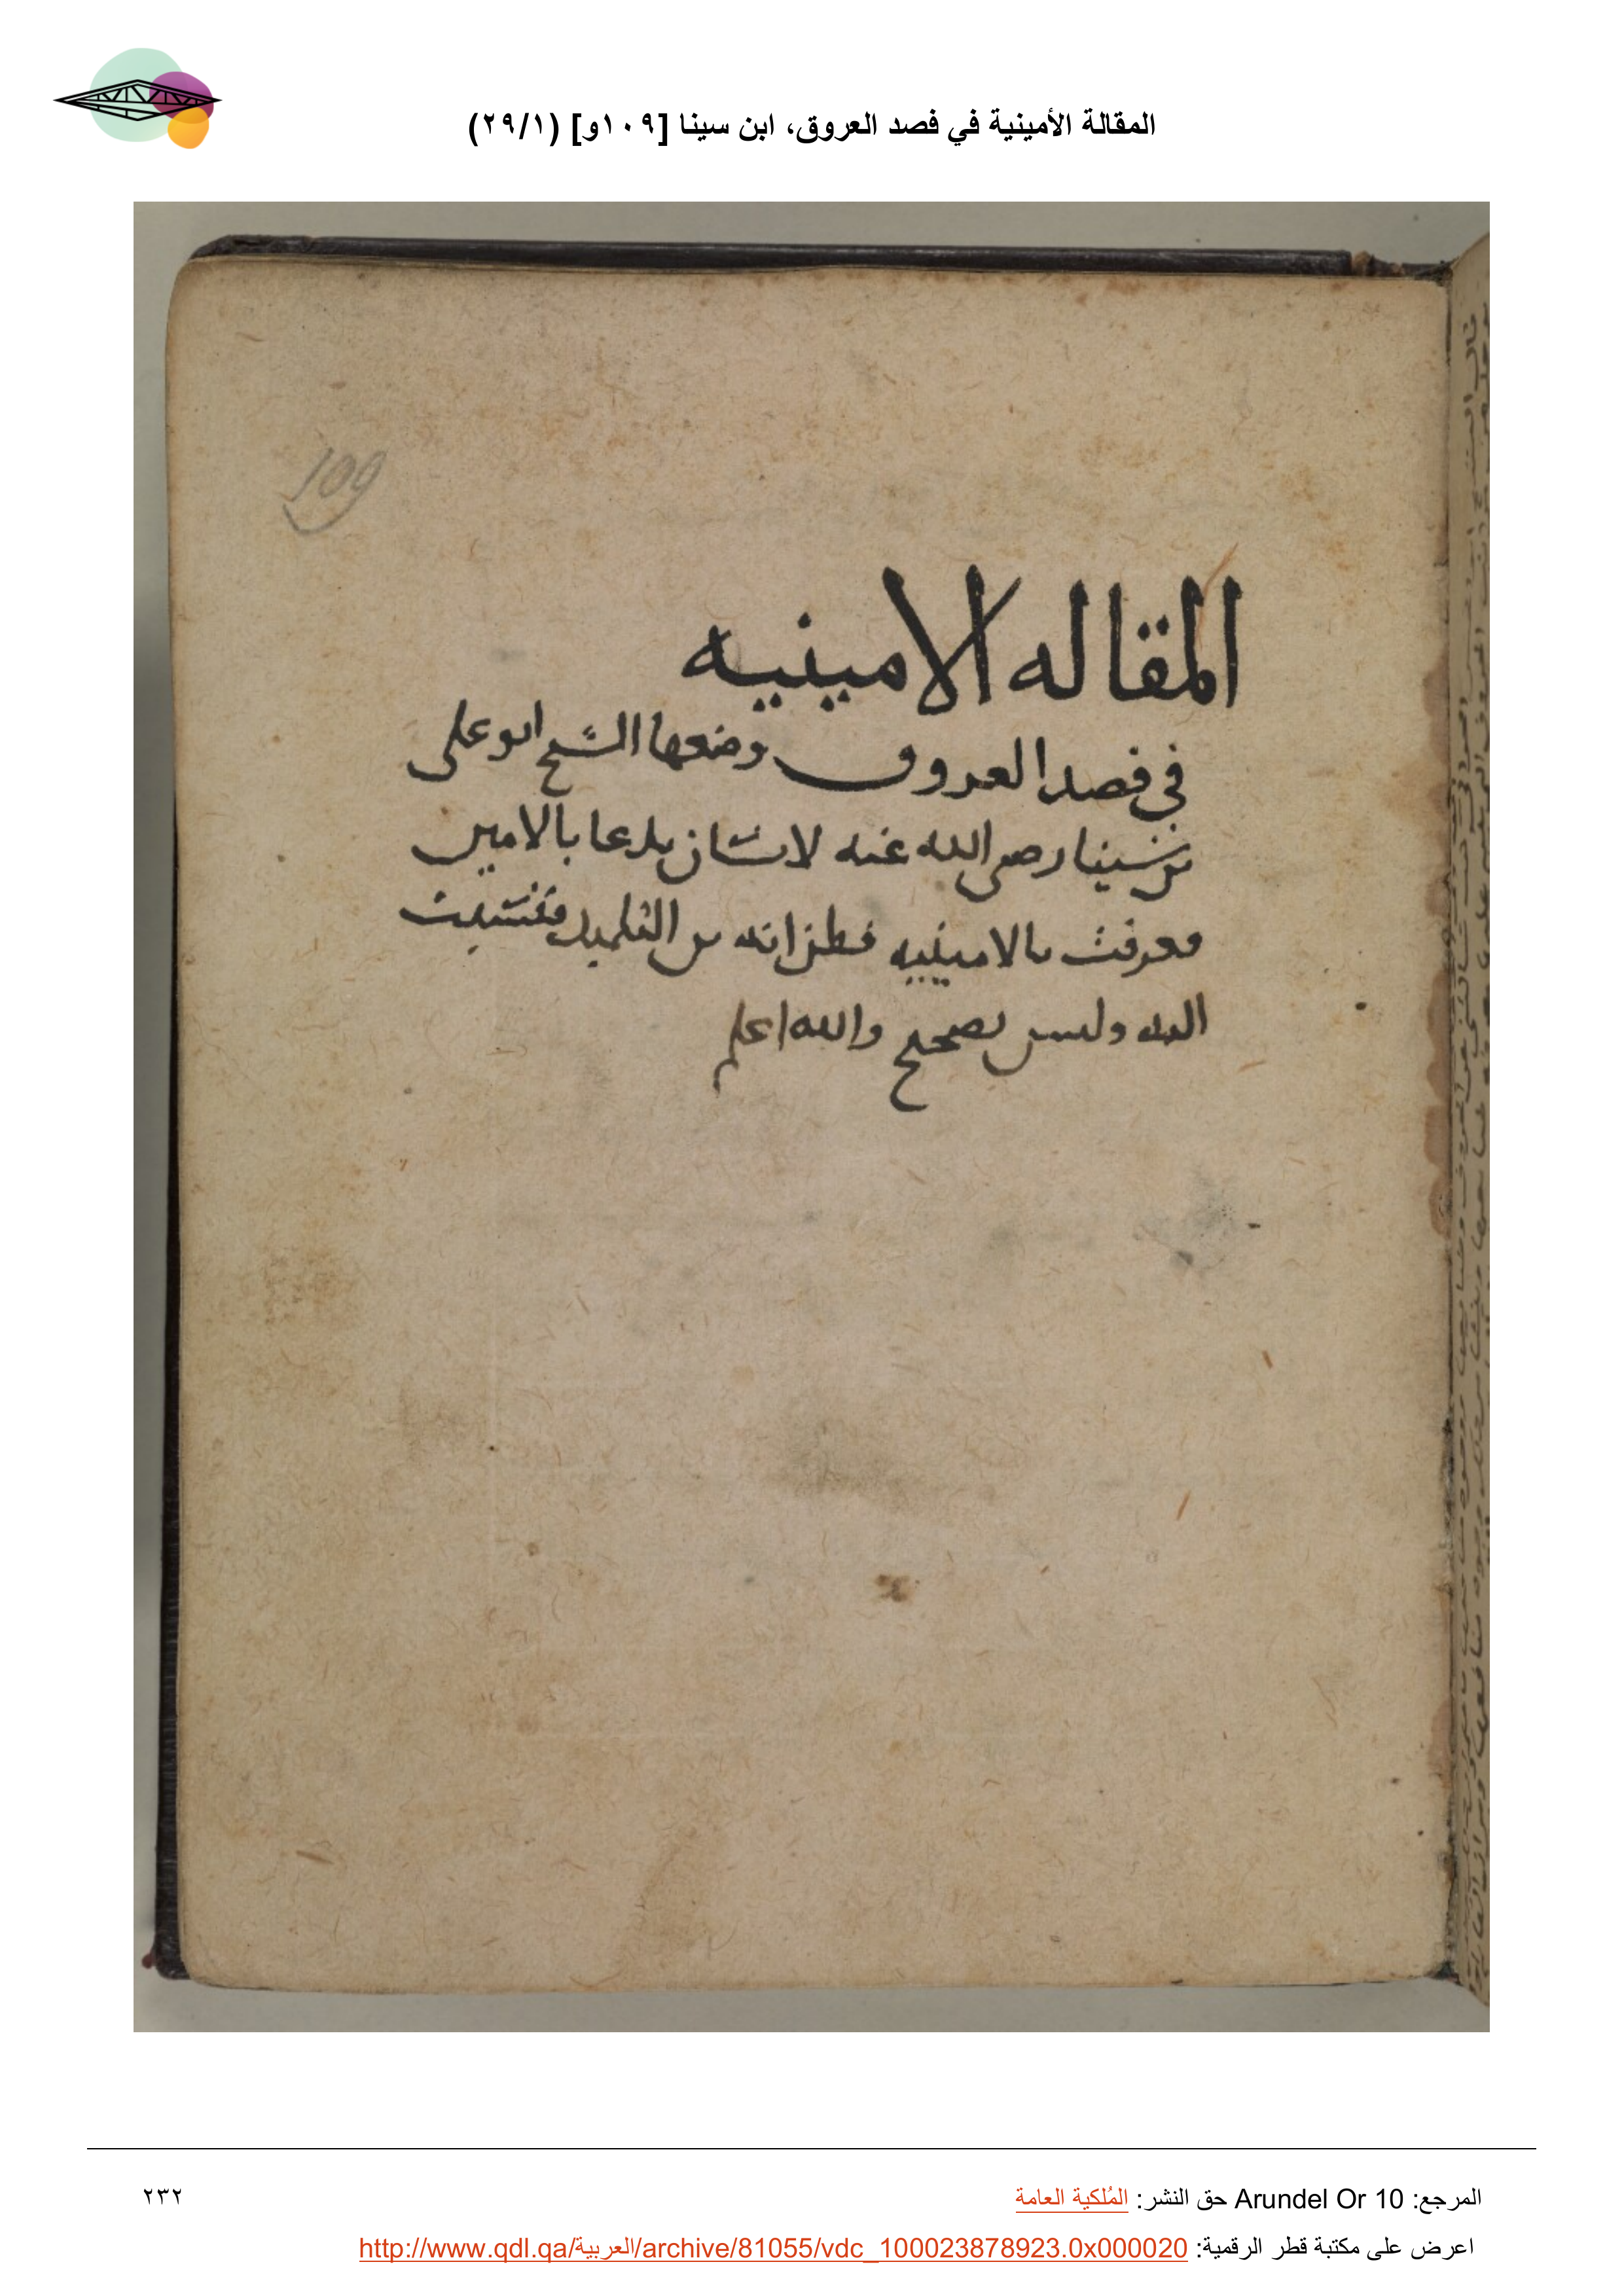 المقالة الأمينية في فصد العروق، ابن سينا [١٠٩و] (٢٩/١)
109
المقاله الامينيه
في فصد العروق وضعها الشيخ ابو على
بن سينا رضى الله عنه لانسان يدعا بالامين
فعرفت بالامينيه فظن انه بن التلميد فنسبت
اليه وليس بصحيح والله اعلم
المرجع: Arundel Or 10 حق النشر: المُلكية العامة
٢٣٢
اعرض على مكتبة قطر الرقمية: http://www.qdl.qa/العربية/archive/81055/vdc_100023878923.0x000020